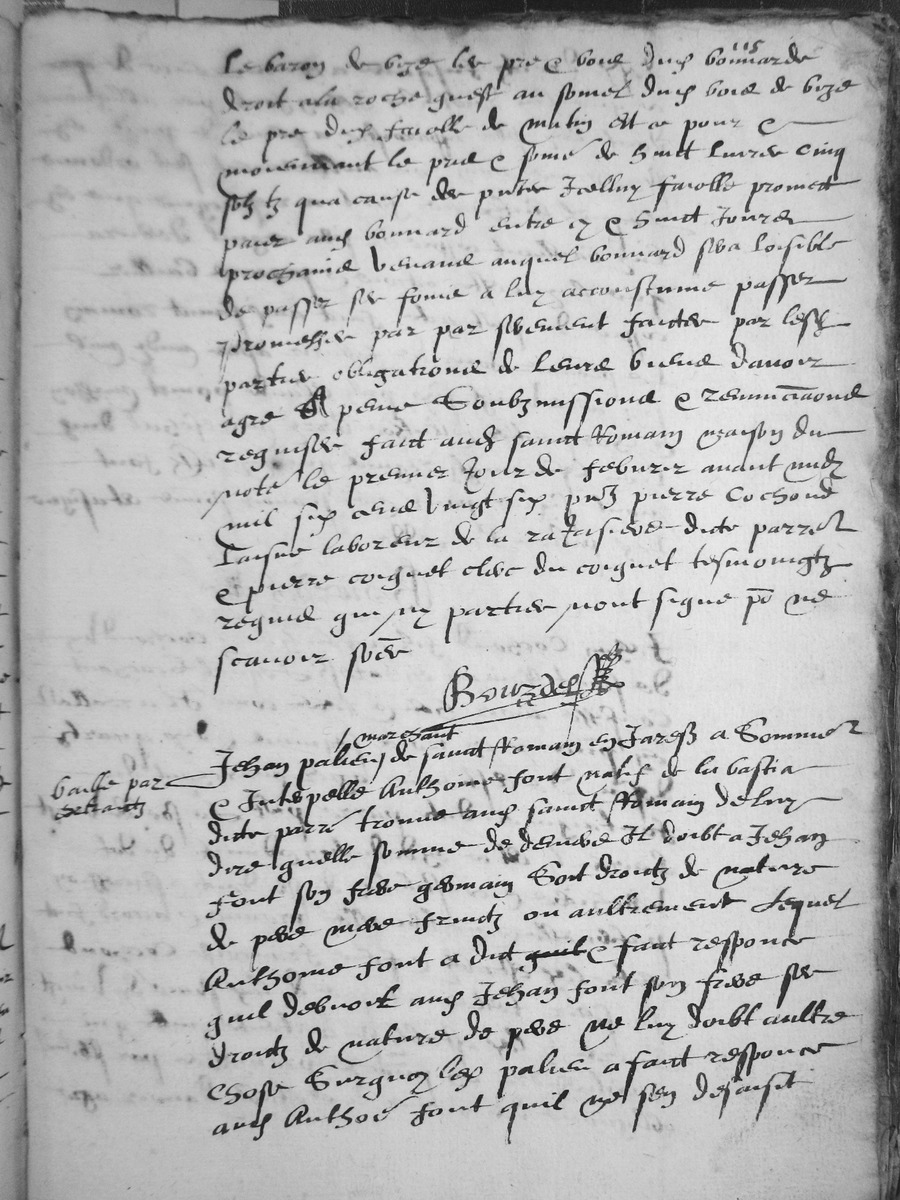 115
le baron de vize les pre & bois dud bonnard de
droit a la roche quest au somet dud bois de vize
le pre dud faiolle de matin est ce pour &
moiennant le pris & some de huict livres cinq
solz tz qua cause de icelluy faiolle promect
paier aud bonnard entre cy & huict jours
prochains venans auquel bonnard sera loisible
de passer se a luy accoustume passer
promesses par par serement faictes par lesd
parties obligations de leurs biens davoir
agre A peine Soubzmissions & renunciaons
requises faict aud sainct Romain maison du
note le premier jour de febvrier avant midy
mil six cens vingt six pntz pierre Cochond
laisne laboreur de la dicte parre
& pierre coignet clerc du coignet tesmoingtz
requis qui ny parties nont signe po ne
scavoir soe
Bourdel
marchant
Jehan palieu de sainct Romain en Jarestz a Somme
baille par
extraictz
& Interpelle Anthoine font natif de la bastia
dicte parre trouve aud sainct Romain de luy
dire quelle somme de deniers Il doibt a Jehan
font son frere germain Soit droictz de nature
de pere mere fruictz ou aultrement Lequel
Anthoine font a dict quil & faict responce
quil debvoit aud Jehan font son frere ses
droictz de nature de pere ne luy doibt aultre
chose Surquoy led palieu a faict responce
aud Anthoe font quil ne sen desaisit